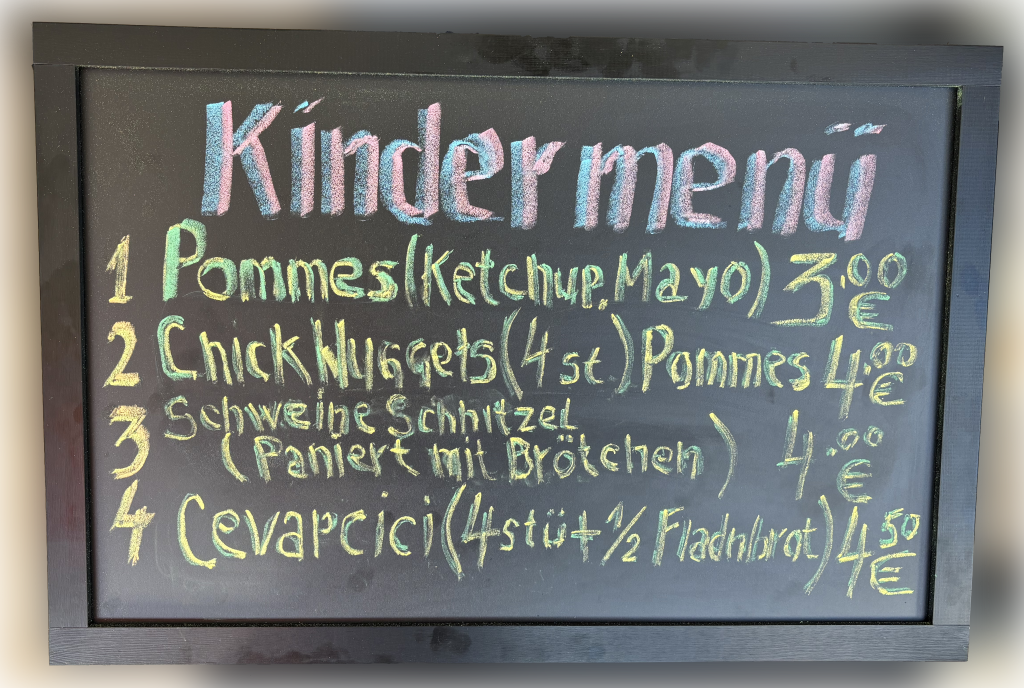 Kindermenü
1 Pommes (Ketchup, Mayo) 3.00 €
2 Chick Nuggets (4 st) Pommes 4.00 €
3 Schweine Schnitzel
(Paniert mit Brötchen) 4.00 €
4 Cevapcici (4 stü + 1/2 Fladnbrot) 4 50 €